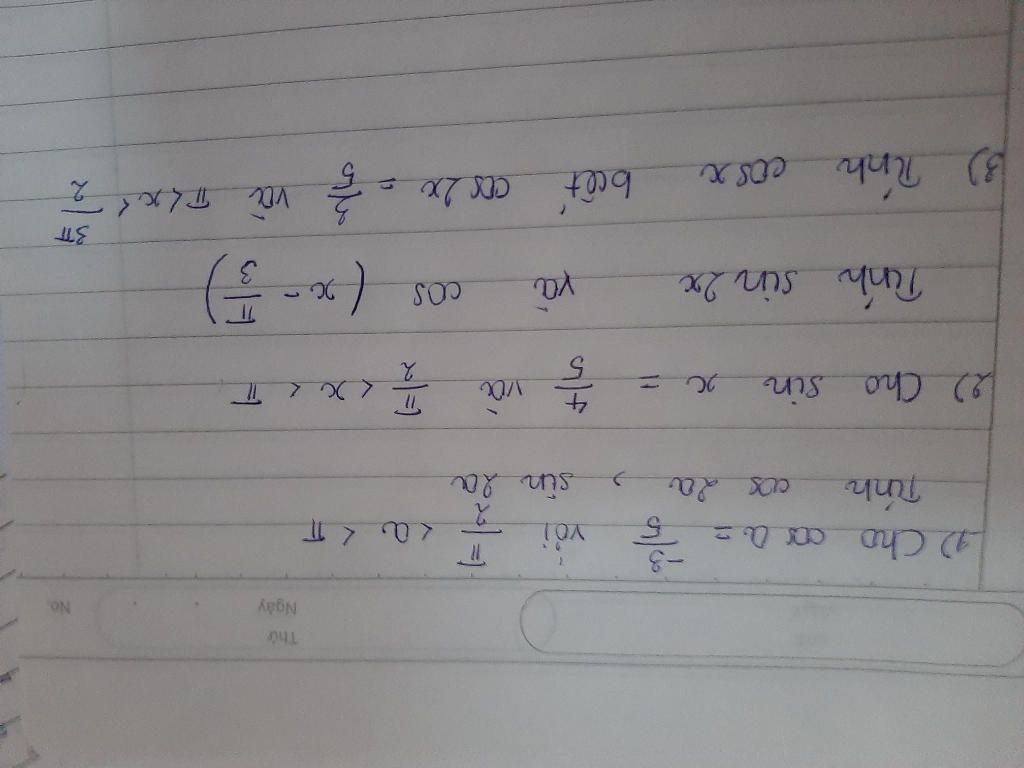 Thứ
Ngày No.
1) Cho cos a = -3/5 với π/2 < a < π
Tính cos 2a , sin 2a
2) Cho sin x = 4/5 và π/2 < x < π
Tính sin 2x và cos (x - π/3)
3) Tính cos x biết cos 2x = 3/5 và π < x < 3π/2